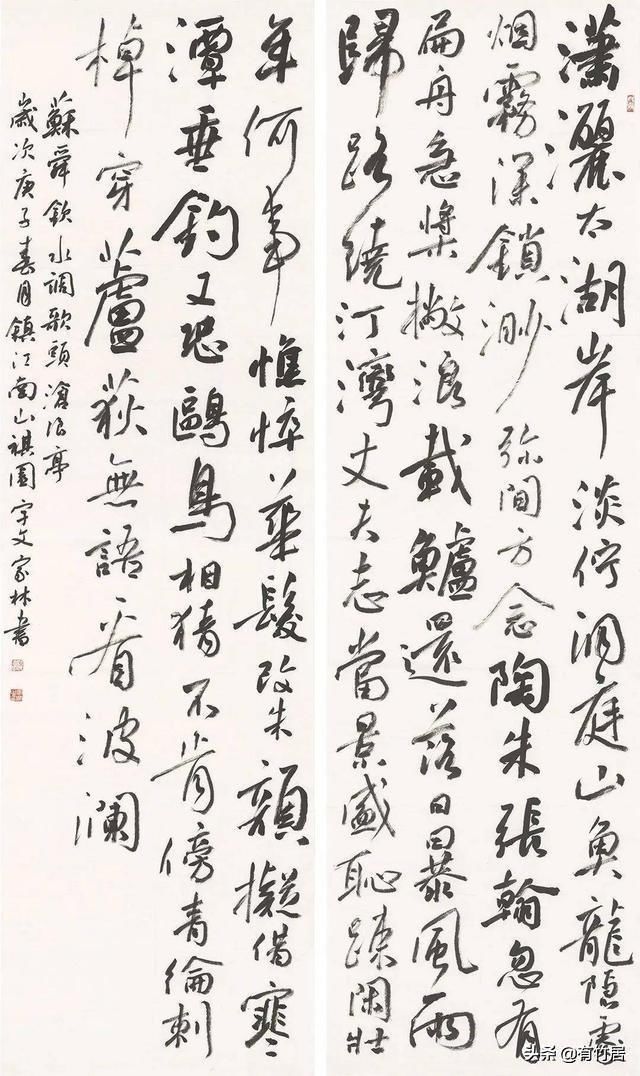 瀟灑太湖岸淡佇洞庭山魚龍隱處
烟霧深鎖渺弥間方念陶朱張翰忽有
扁舟急槳撇浪載鱸還落日暴風雨
歸路繞汀灣丈夫志當景盛恥疎閑壯
年何事憔悴華髮改朱顏擬借寒
潭垂釣又恐鷗鳥相猜不肯傍青綸刺
棹穿蘆荻無語看波瀾
蘇舜欽水調歌頭滄浪亭
歲次庚子春月鎮江南山祺園宇文家林書
头条 @有竹居